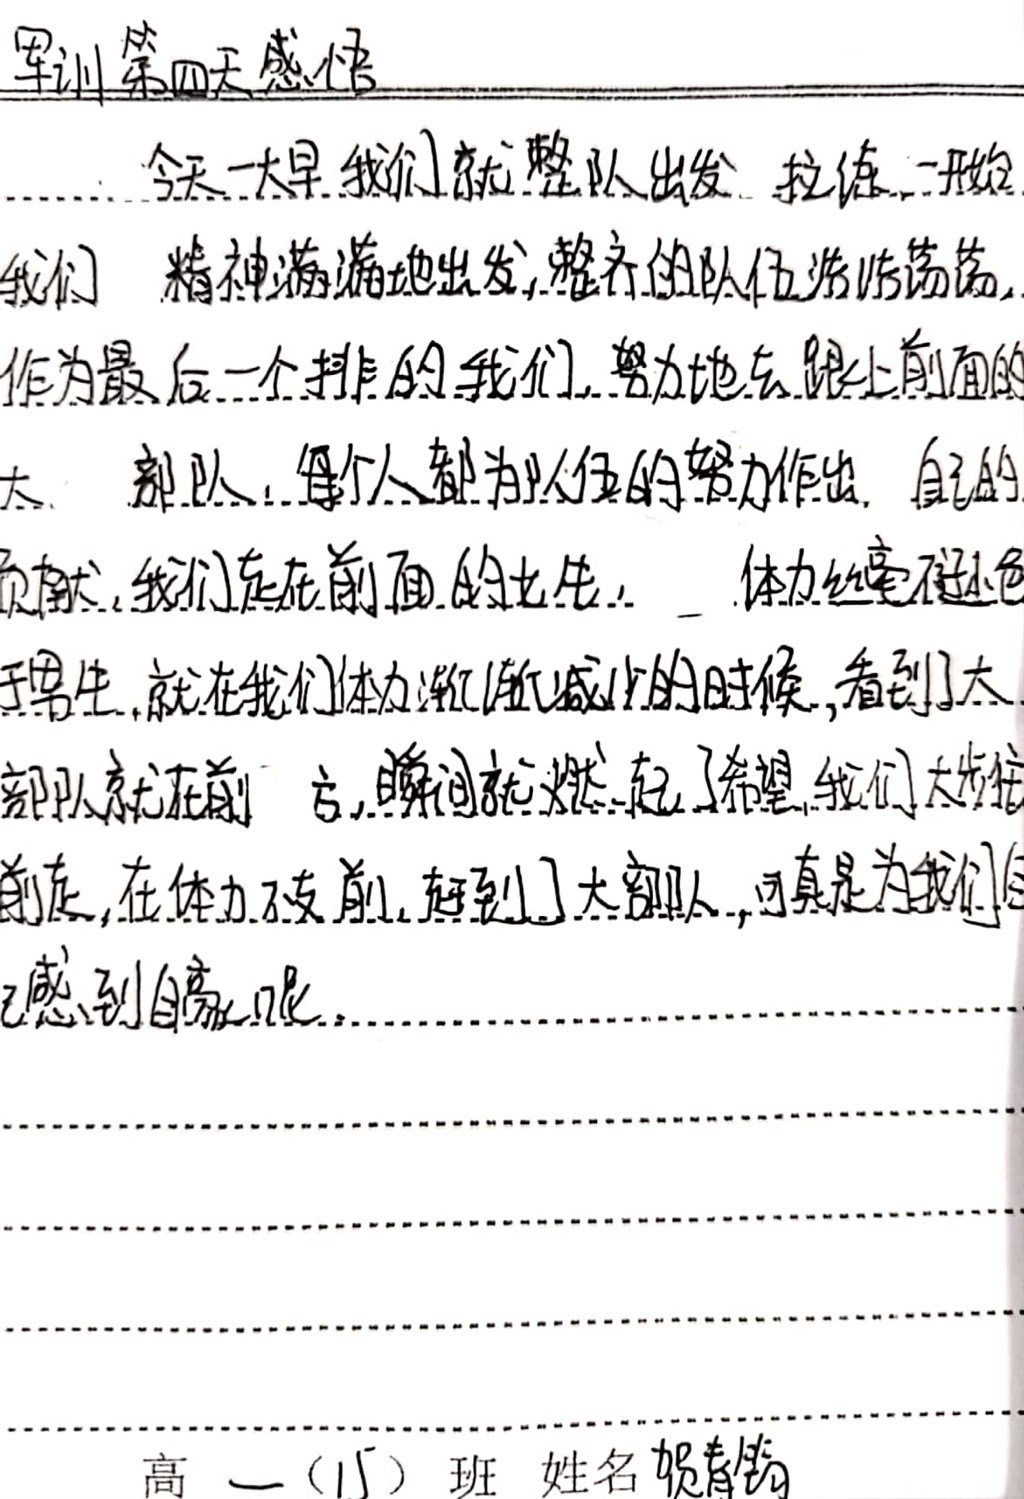 军训第四天感悟
今天一大早我们就整队出发 拉练,一开始
我们 精神满满地出发,整齐的队伍浩浩荡荡,
作为最后一个排的我们,努力地去跟上前面的
大 部队,每个人都为队伍的努力作出 自己的
贡献,我们走在前面的女生, 体力丝毫不逊色
于男生,就在我们体力渐渐减少的时候,看到了大
部队就在前 方,瞬间就燃起了希望,我们大步往
前走,在体力不支前,赶到了大部队,可真是为我们自
己感到自豪呢.
高一(15)班 姓名 贺春